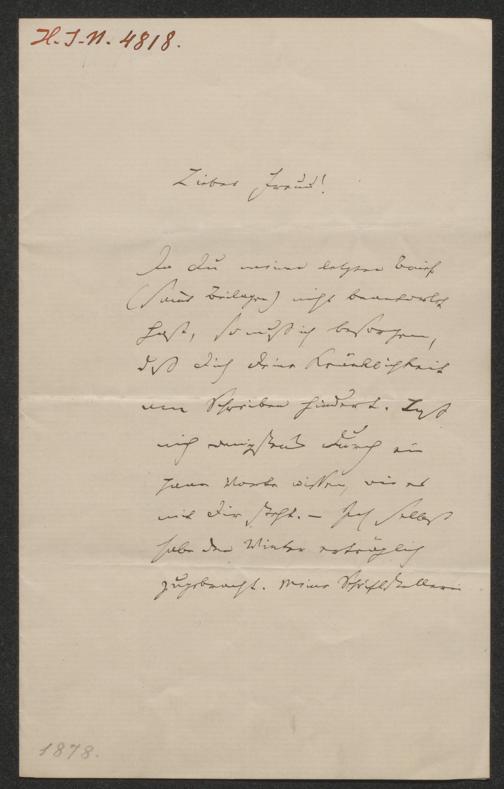 H.I.N. 4818.
Lieber Freund!
Da du meinen letzten Brief
(samt Beilagen) nicht beantwortet
hast, so muß ich besorgen,
daß dich deine Kränklichkeit
am Schreiben hindert. Laß
mich wenigstens durch ein
paar Worte wissen, wie es
mit dir steht. – Ich selbst
habe den Winter erträglich
zugebracht. Meine Schriftstellerei
1878.